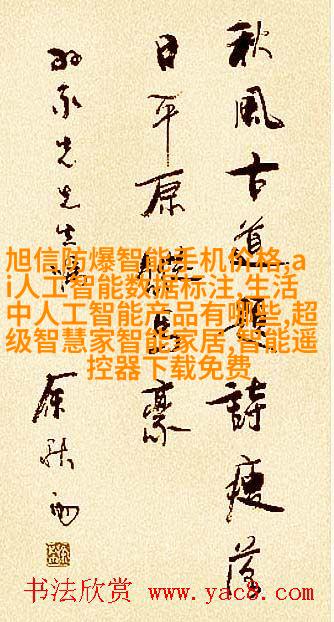 秋風古道題詩瘦落
日平原縱馬豪
先生
余秋雨
旭信防爆智能手机价格,a
i人工智能数据标注,生活
中人工智能产品有哪些,超
级智慧家智能家居,智能遥
控器下载免费
书法欣赏 www.yac8.com